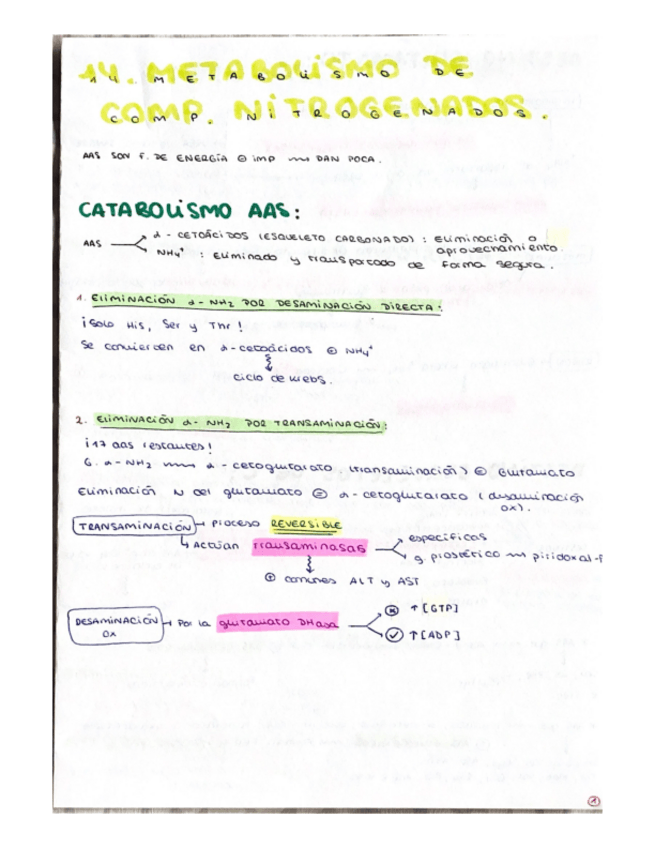 14. METABOLISMO DE
COMP. NITROGENADOS.
AAS SON F. DE ENERGÍA ⊖ IMP → DAN POCA.
CATABOLISMO AAS:
AAS
α - CETOÁCIDOS (ESQUELETO CARBONADO) : Eliminación o aprovechamiento.
NH4+ : Eliminado y transportado de forma segura.
1. Eliminación α - NH2 POR DESAMINACIÓN DIRECTA:
¡Solo His, Ser y Thr!
Se convierten en α-cetoácidos ⊕ NH4+
ciclo de Krebs.
2. Eliminación α- NH2 POR TRANSAMINACIÓN:
¡17 aas restantes!
G. α-NH2 → α - cetoglutarato (transaminación) ⊜ Glutamato
Eliminación N del glutamato ⊜ α-cetoglutarato (desaminación ox).
TRANSAMINACIÓN → proceso REVERSIBLE
↳ Actúan transaminasas
específicas
g. prostético → piridoxal-P
⊕ comunes ALT y AST
DESAMINACIÓN OX → Por la glutamato DHasa
ⓧ ↑[GTP]
✓ ↑[ADP]
1